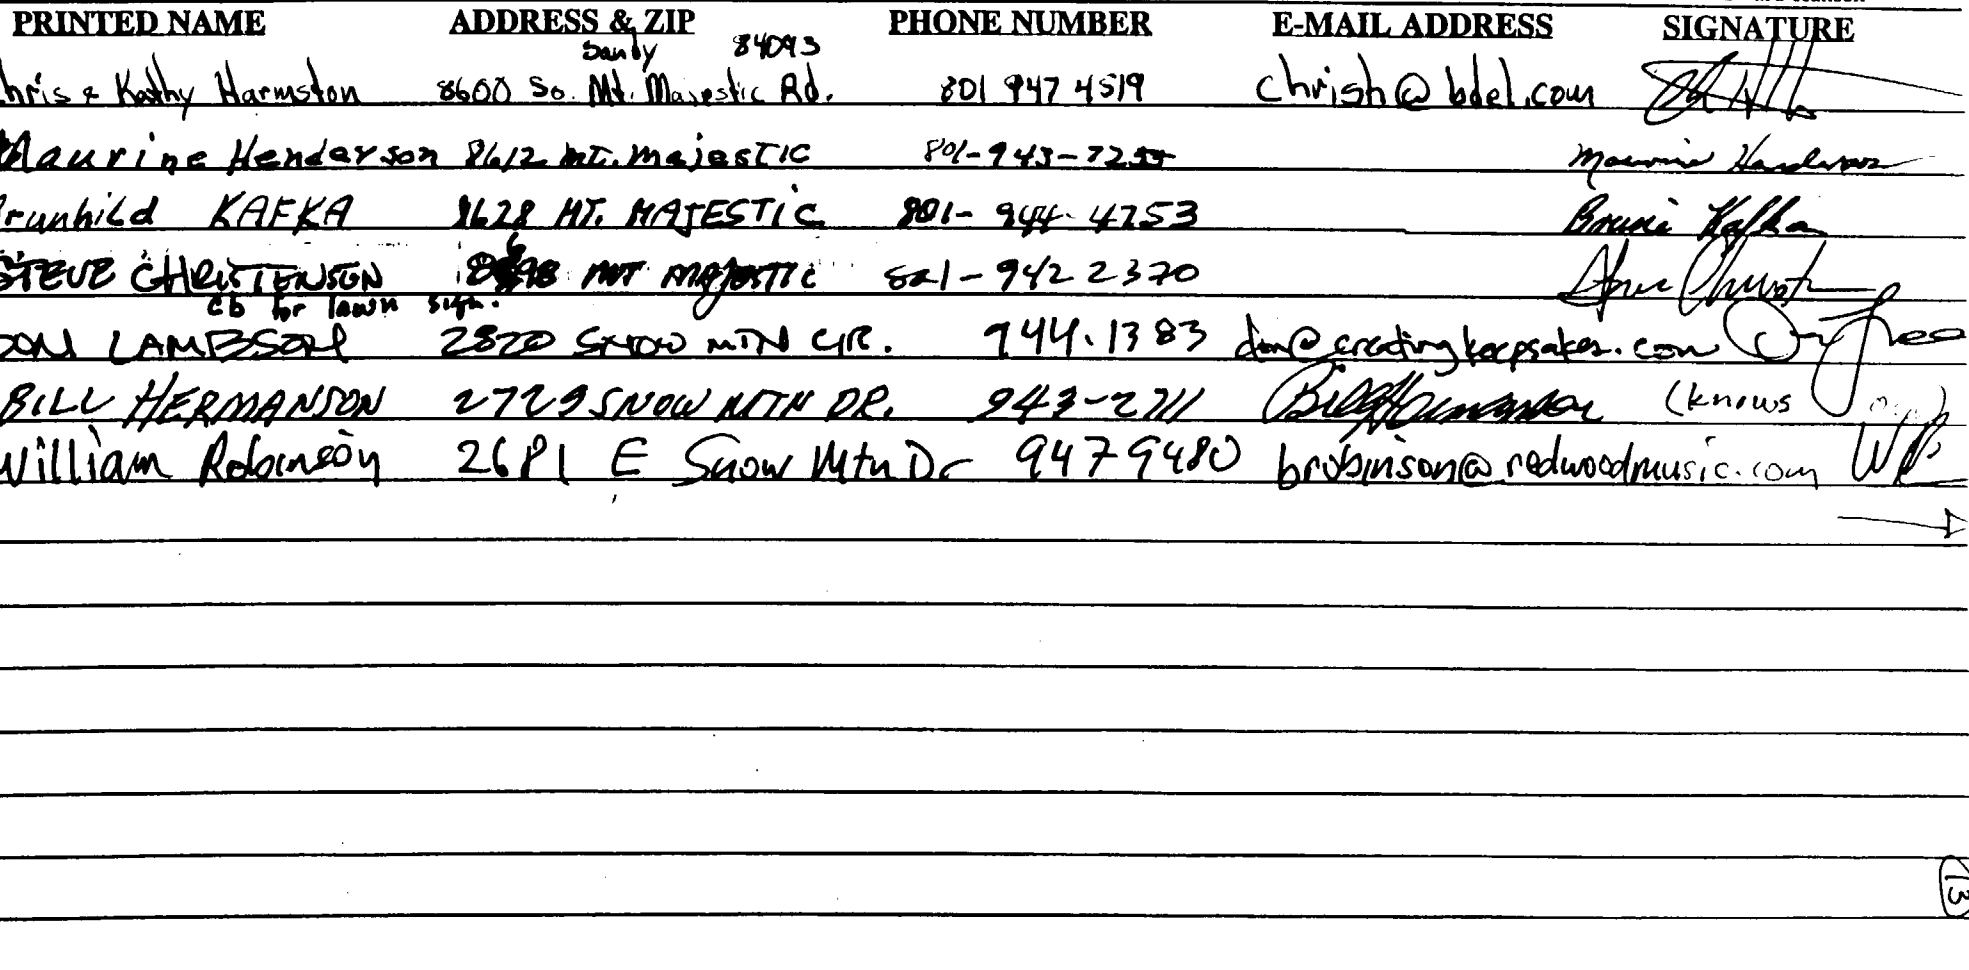 PRINTED NAME ADDRESS & ZIP PHONE NUMBER E-MAIL ADDRESS SIGNATURE
Sandy 84093
hris & Kathy Harmston 8600 So. Mt. Majestic Rd. 801 947 4519 chrish@bdel.com
Maurine Henderson 8612 MT. Majestic 801-943-7255 Maurine Henderson
runhild KAFKA 8628 MT. MAJESTIC 801-944-4253 Brunie Kafka
STEVE CHRISTENSON MT MAJESTIC 801-942 2370 Steve
cb for lawn sign.
DON LAMBSON 2820 SNOW MTN CIR. 944.1383 don@creatingkeepsakes.com
BILL HERMANSON 2729 SNOW MTN DR. 943-2711 Bill Hermanson (knows
William Robinson 2681 E Snow Mtn Dr 947 9480 brobinson@redwoodmusic.com WR
13